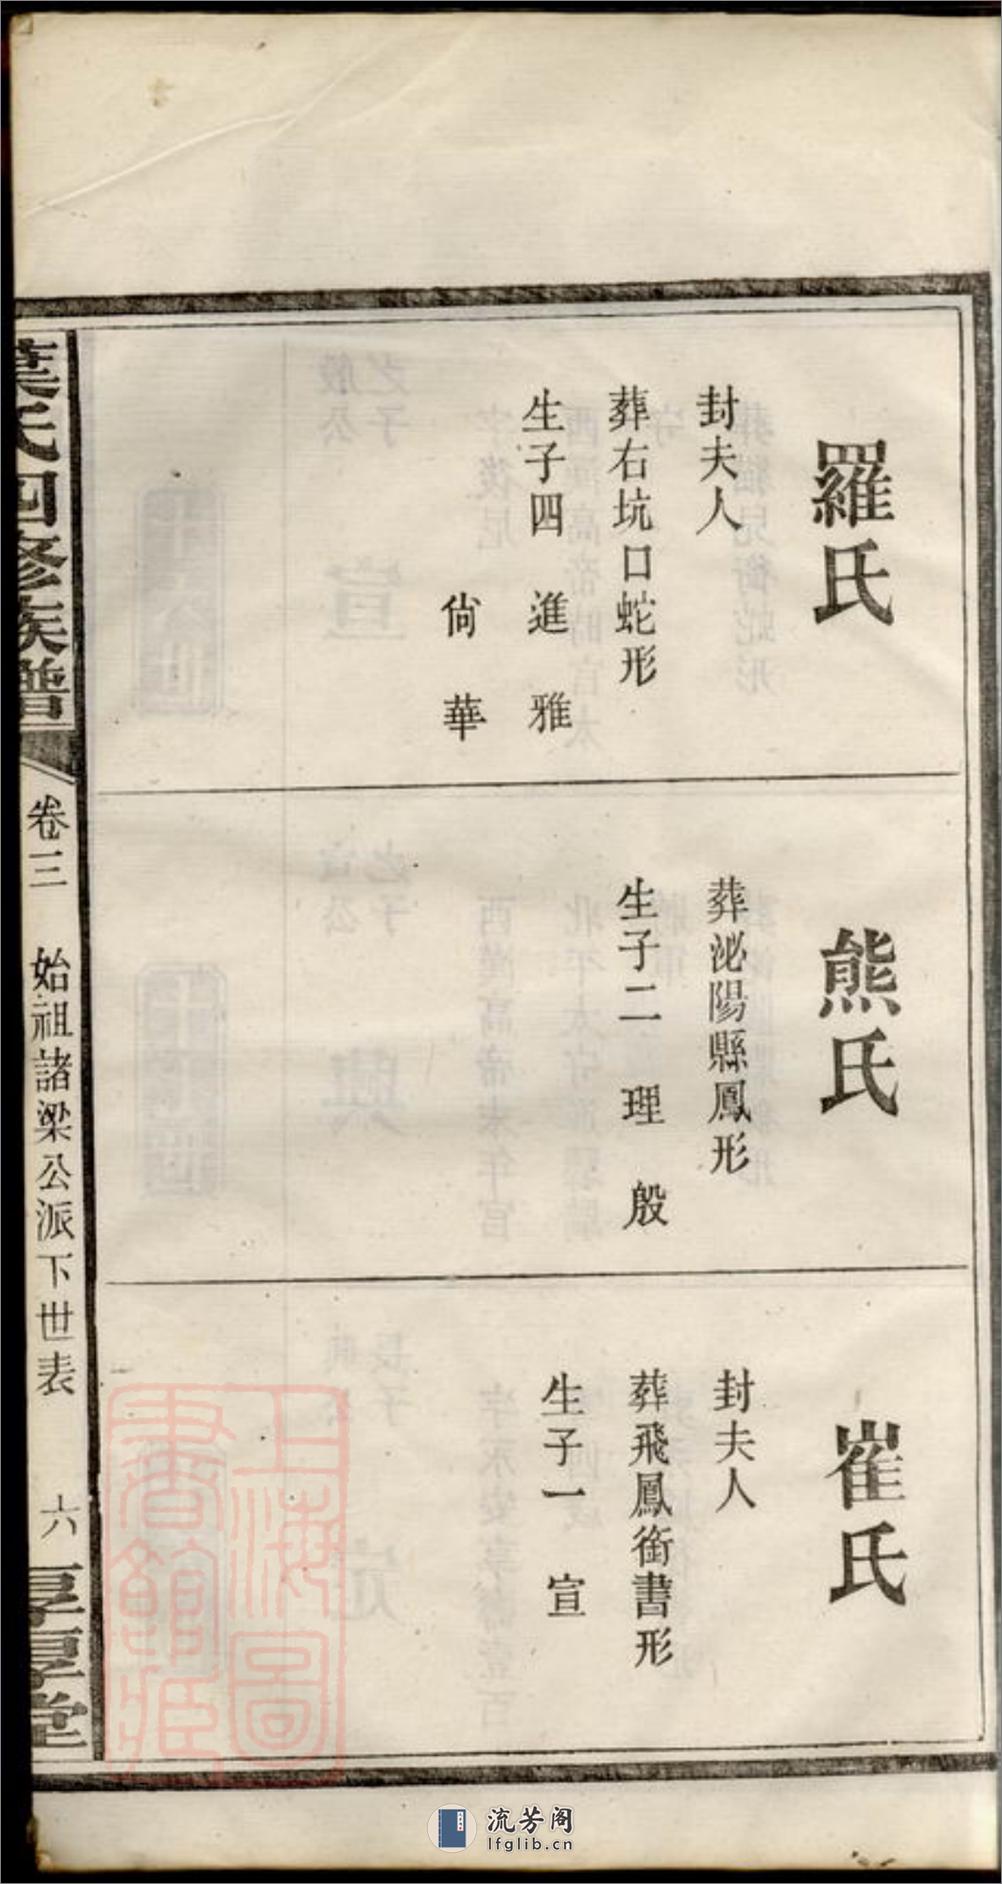 羅氏
封夫人
葬右坑口蛇形
生子四 進 雅
尙 華
熊氏
葬泌陽縣鳳形
生子二 理 殷
崔氏
封夫人
葬飛鳳銜書形
生子一 宣
葉氏四修族譜
卷三 始祖諸梁公派下世表 六
享厚堂
上海圖書館藏
流芳阁
lfglib.cn